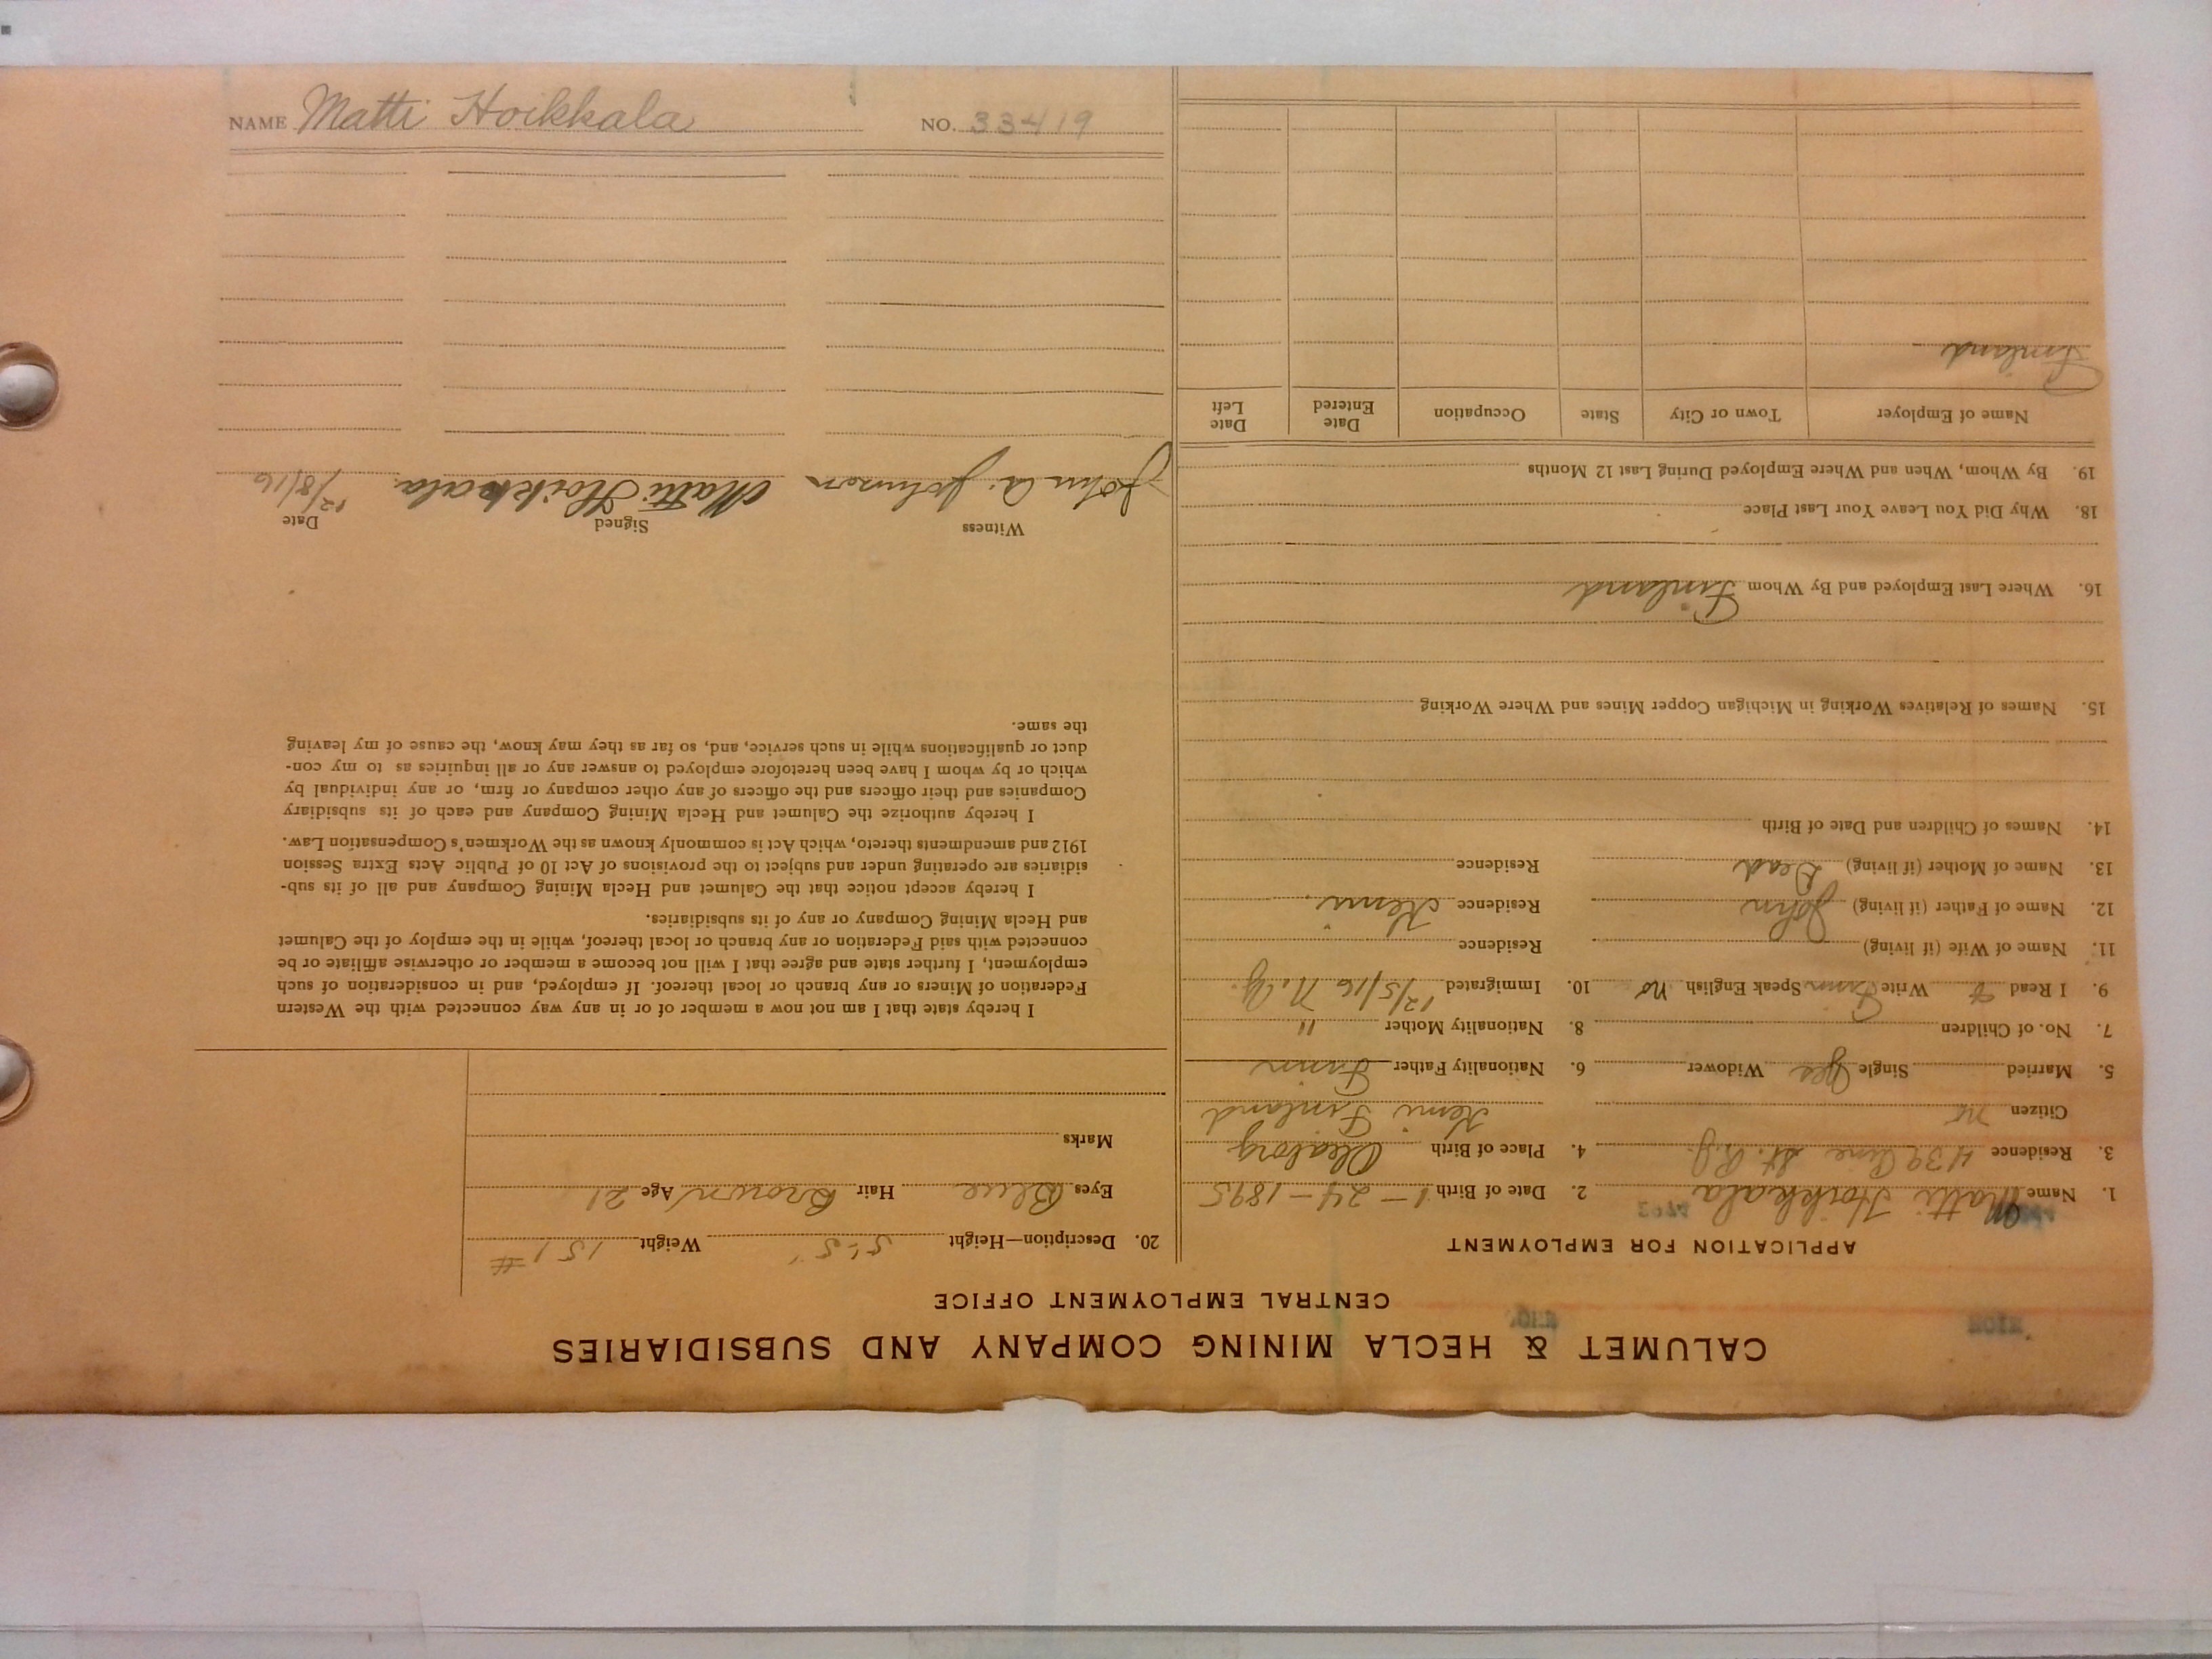 CALUMET & HECLA MINING COMPANY AND SUBSIDIARIES
CENTRAL EMPLOYMENT OFFICE
APPLICATION FOR EMPLOYMENT
1. Name Matti Hoikkala 2. Date of Birth 1-24-1895
3. Residence 439 Pine St. R.J. 4. Place of Birth Uleaborg
Citizen no Kemi Finland
5. Married Single Yes Widower 6. Nationality Father Finn
7. No. of Children 8. Nationality Mother "
9. I Read & Write Finn Speak English no 10. Immigrated 12/5/16 N.Y.
11. Name of Wife (if living) Residence
12. Name of Father (if living) John Residence Kemi
13. Name of Mother (if living) Dead Residence
14. Names of Children and Date of Birth
15. Names of Relatives Working in Michigan Copper Mines and Where Working
16. Where Last Employed and By Whom Finland
18. Why Did You Leave Your Last Place
19. By Whom, When and Where Employed During Last 12 Months
Name of Employer Town or City State Occupation Date Entered Date Left
Finland
20. Description—Height 5'-5" Weight 151 #
Eyes Blue Hair Brown Age 21
Marks
I hereby state that I am not now a member of or in any way connected with the Western
Federation of Miners or any branch or local thereof. If employed, and in consideration of such
employment, I further state and agree that I will not become a member or otherwise affiliate or be
connected with said Federation or any branch or local thereof, while in the employ of the Calumet
and Hecla Mining Company or any of its subsidiaries.
I hereby accept notice that the Calumet and Hecla Mining Company and all of its sub-
sidiaries are operating under and subject to the provisions of Act 10 of Public Acts Extra Session
1912 and amendments thereto, which Act is commonly known as the Workmen's Compensation Law.
I hereby authorize the Calumet and Hecla Mining Company and each of its subsidiary
Companies and their officers and the officers of any other company or firm, or any individual by
which or by whom I have been heretofore employed to answer any or all inquiries as to my con-
duct or qualifications while in such service, and, so far as they may know, the cause of my leaving
the same.
Witness Signed Date
John A. Johnson Matti Hoikkala 12/8/16
NAME Matti Hoikkala NO. 33419